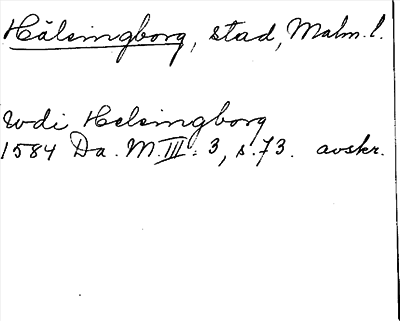 Hälsingborg, stad, Malm. l.
wdi Helsingborg
1584 Da. M. III: 3, s. 73. avskr.